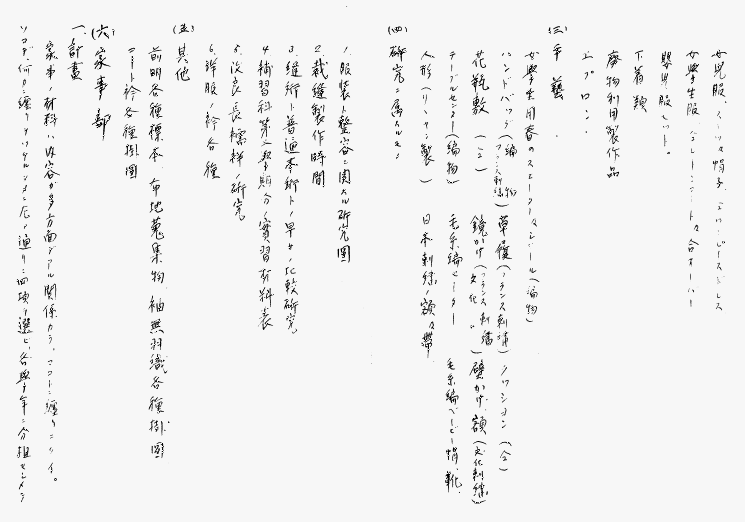 女児服、スーツ、帽子、ワンピースドレス
女學生服
婦児服セット。
下着類
廃物利用製作品
エプロン.
(三) 手藝.
女學生用春のスエーター
ハンドバッグ(編物 フランス刺繍) 草履(フランス刺繍) クッション(〃)
花瓶敷(〃) 鏡かけ(フランス刺繍 文化〃) 壁かけ、額(文化刺繍)
テーブルセンター(編物) 毛糸編セーター 毛糸編ベービー帽、靴
人形(リリアン製) 日本刺繍ノ額ト帯
(四) 研究ニ属スルモノ
1. 服装ト整容ニ関スル研究図
2. 裁縫製作時間
3. 縫術ト普通本術トノ早サノ比較研究
4. 補習科第 學期分ノ實習材料表
5. 改良長襦袢ノ研究
6. 洋服ノ衿各種
(五) 其他
前明各種標本 布地蒐集物 袖無羽織各種掛図
コート衿各種掛図
(六) 家事ノ部
一、計畫
家事ノ材料ハ内容ガ多方面デアル関係カラ、マコトニ纏リニクイ。
ソコデ何カ纏リヲツケルタメニ左ノ通リニ四項ヲ選ビ、各學年ニ分担セシメタ